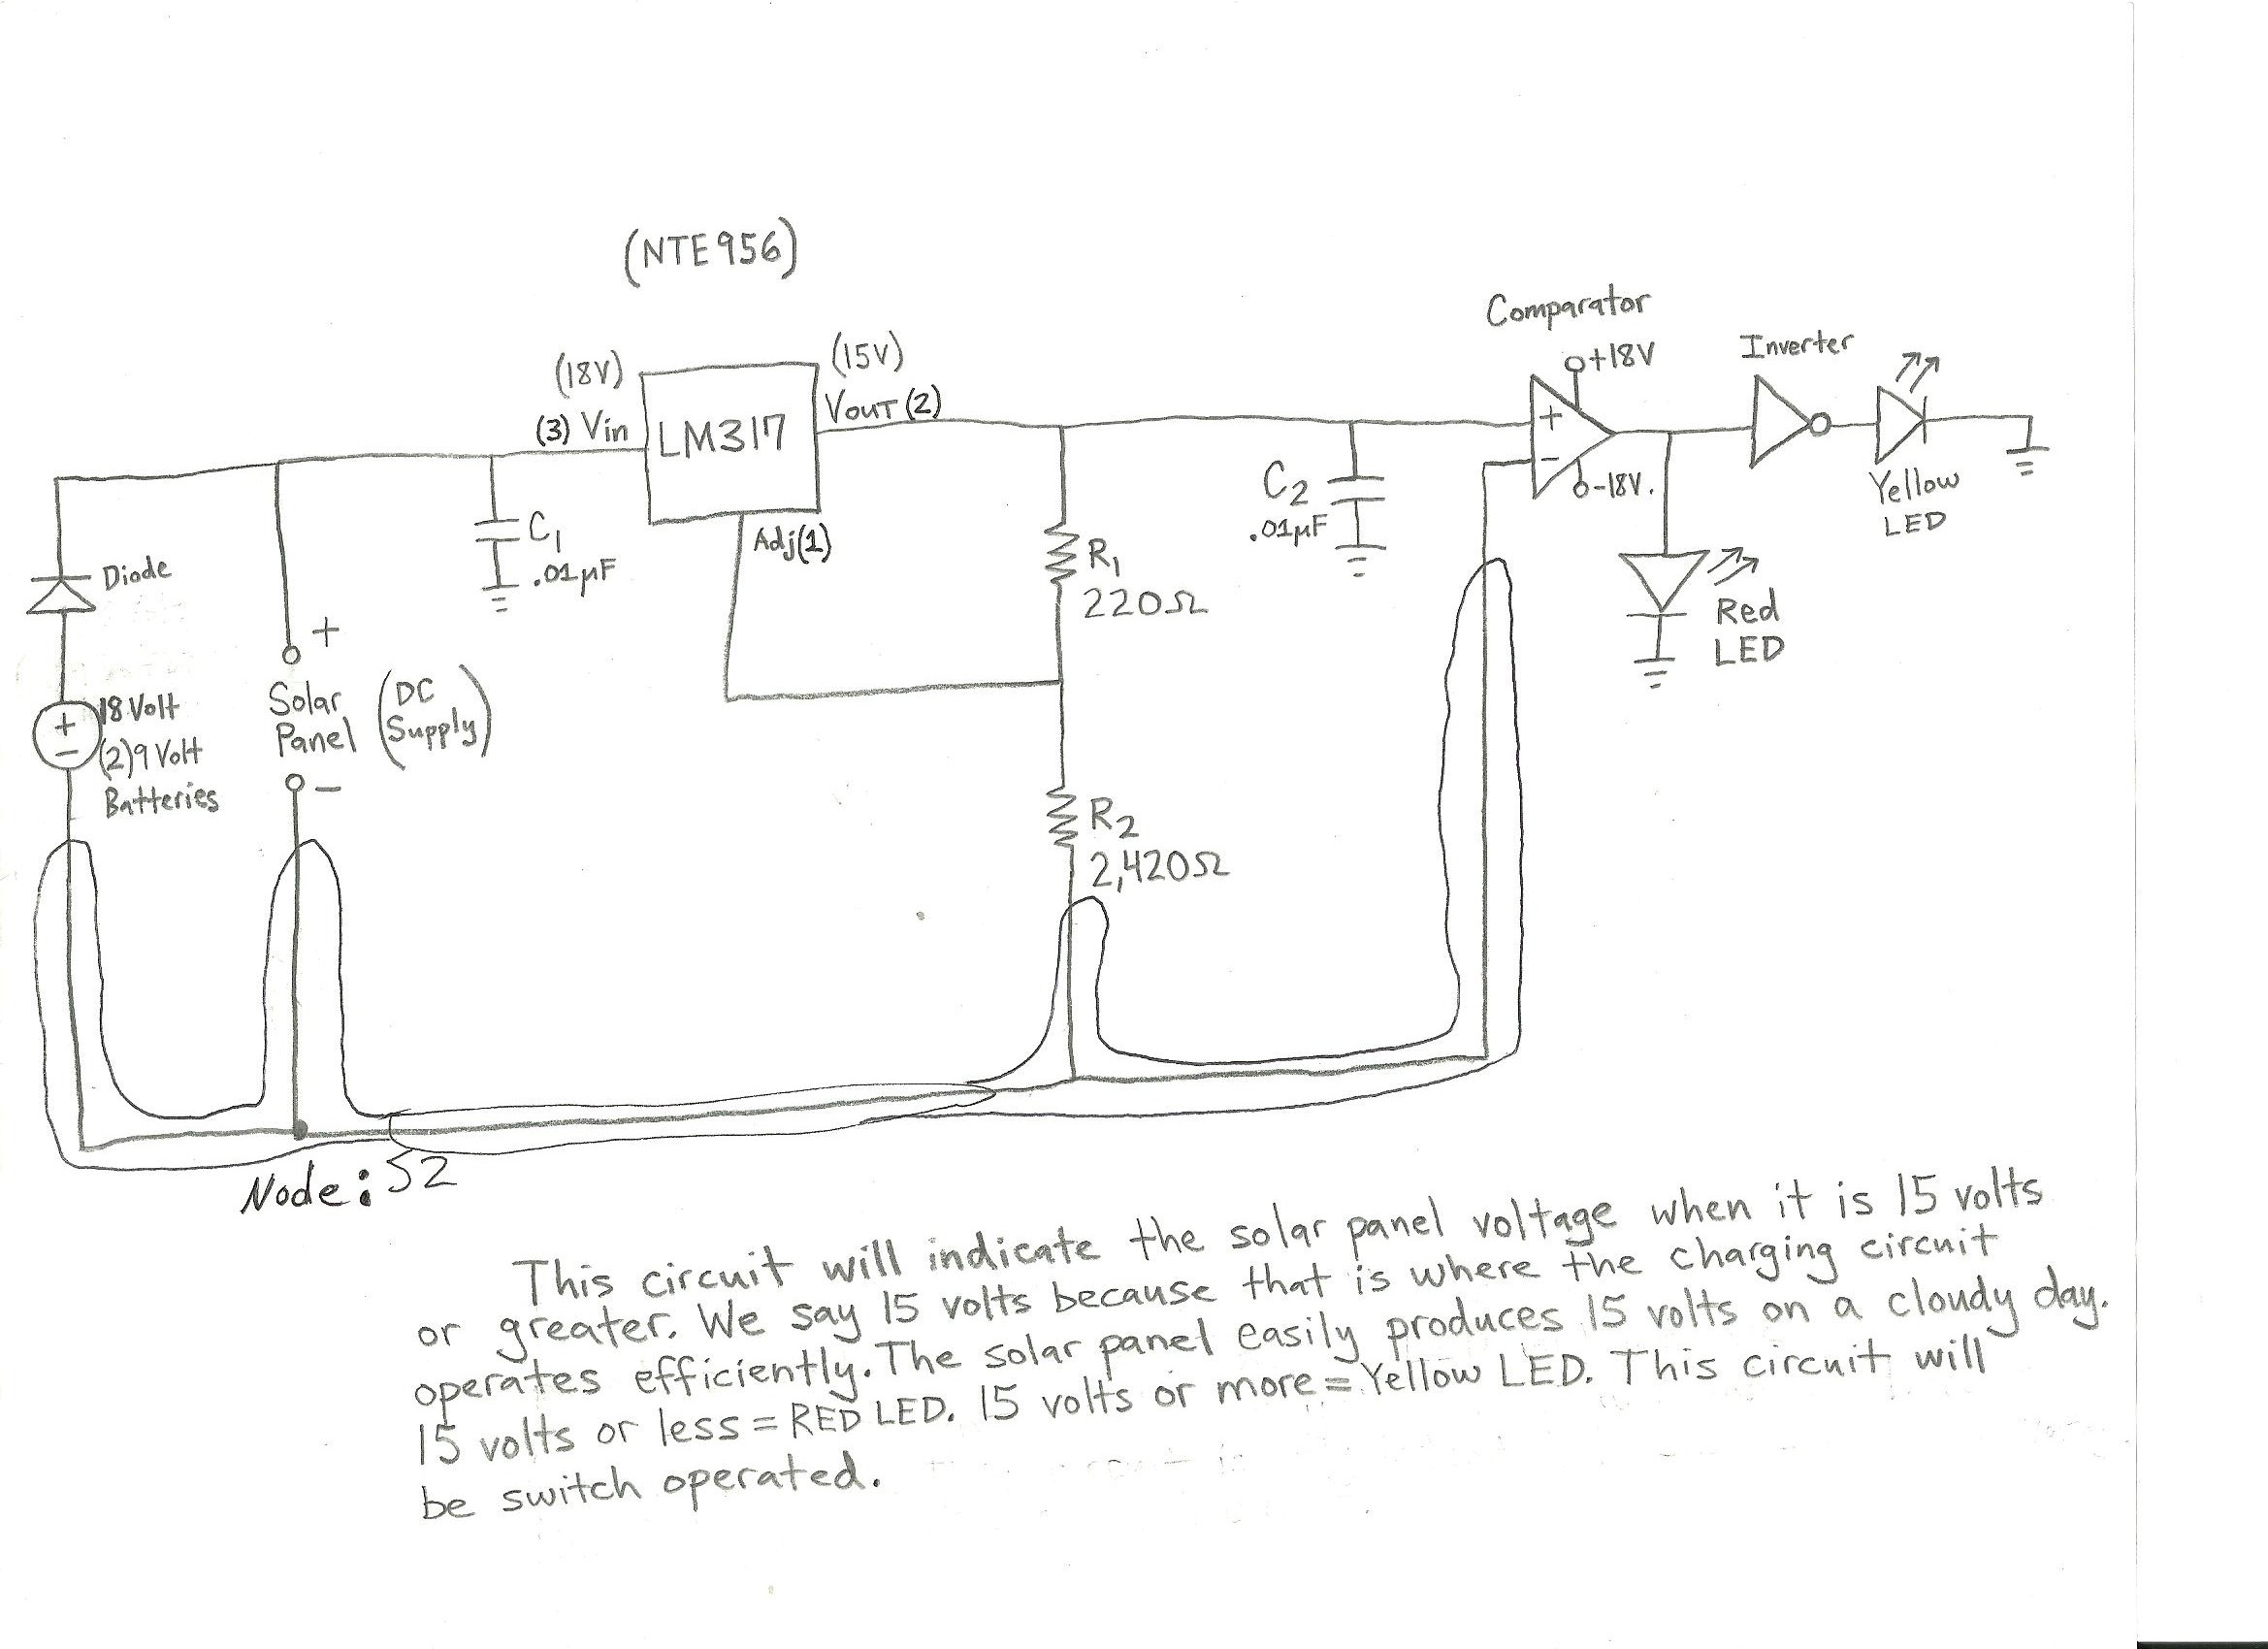 (NTE956)
Comparator
+18V
Inverter
(18V)
(15V)
(3) Vin
LM317
VOUT (2)
+
-
-18V.
Yellow
LED
C1
.01µF
Adj(1)
C2
.01µF
R1
220Ω
Red
LED
Diode
+
Solar
Panel
(DC
Supply)
-
+
-
18 Volt
(2)9 Volt
Batteries
R2
2,420Ω
Node: 52
This circuit will indicate the solar panel voltage when it is 15 volts
or greater. We say 15 volts because that is where the charging circuit
operates efficiently. The solar panel easily produces 15 volts on a cloudy day.
15 volts or less = RED LED. 15 volts or more = Yellow LED. This circuit will
be switch operated.